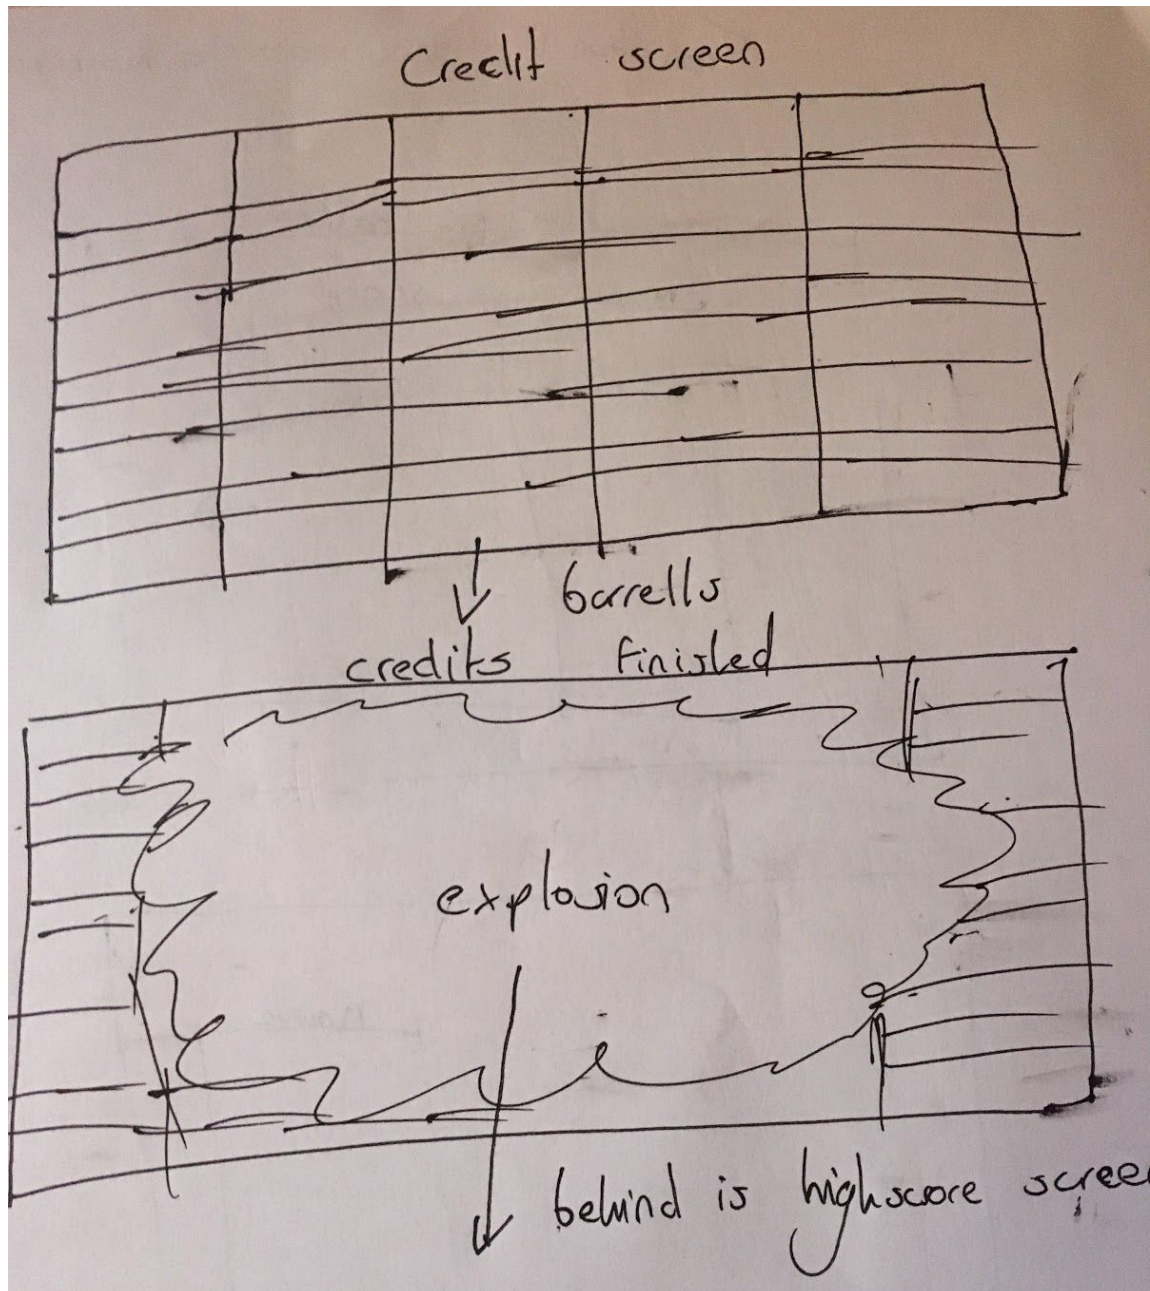 Credit screen
barrells
credits finished
explosion
behind is highscore screen